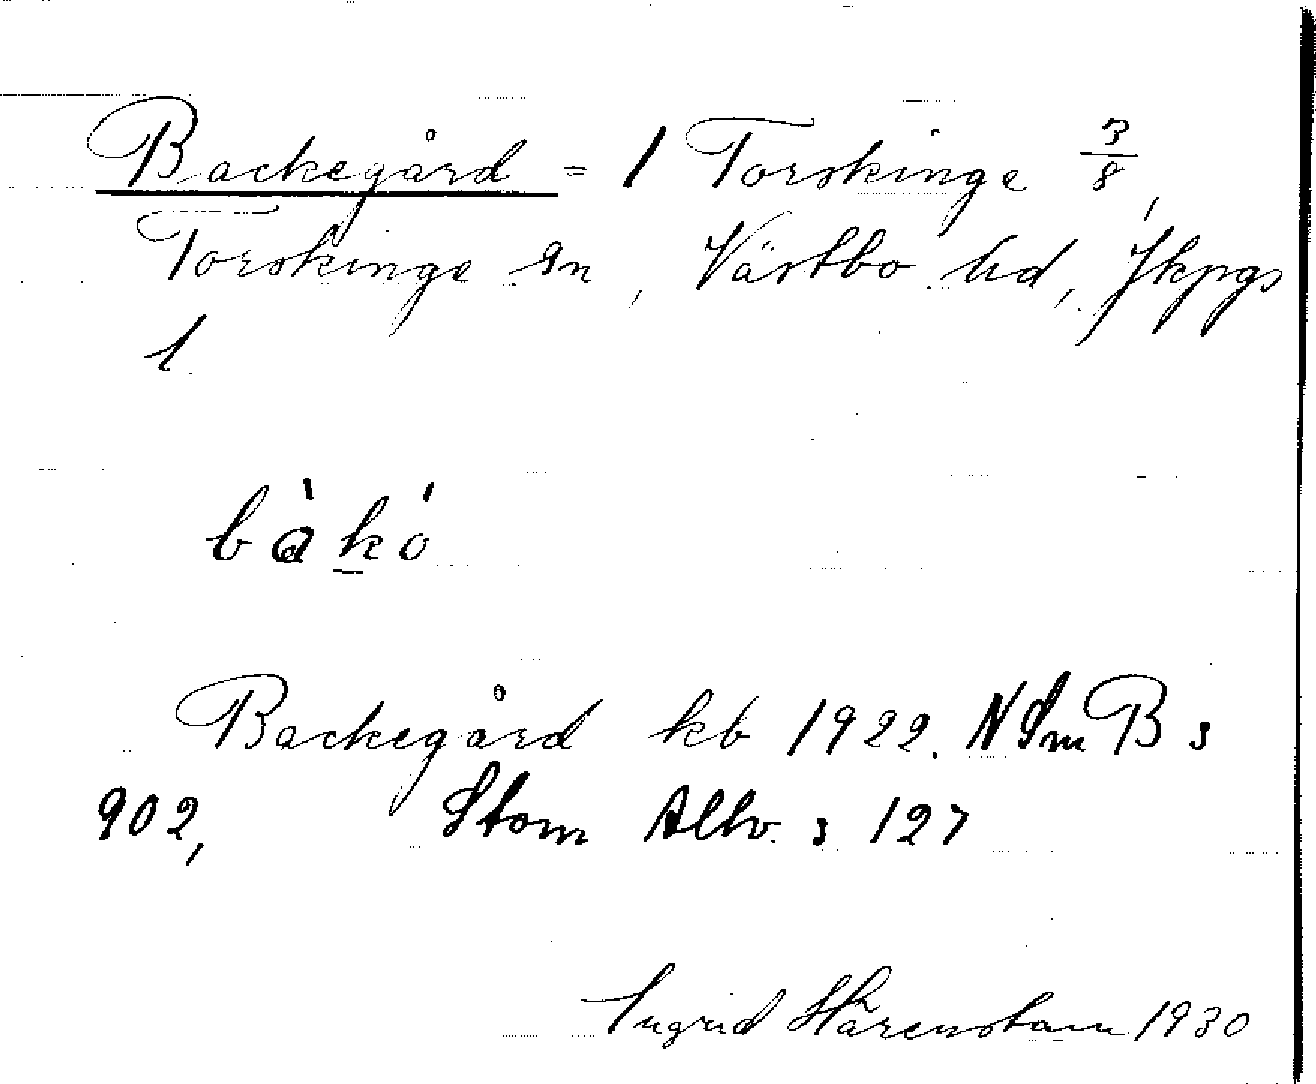 Backegård = 1 Torskinge 3/8,
Torskinge sn, Västbo hd, Jkpgs
l
bàkó
Backegård kb 1922. NSmB s
902, Stom Allv. s 127
Ingrid Härenstam 1930